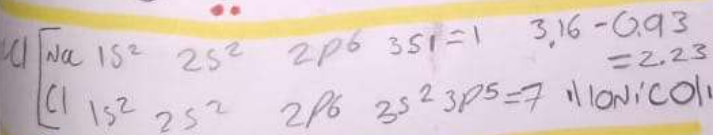 Cl [Na 1s² 2s² 2p6 3s1=1 3,16-0.93
=2.23
[Cl 1s² 2s² 2p6 3s² 3p5=7 "IONICO"